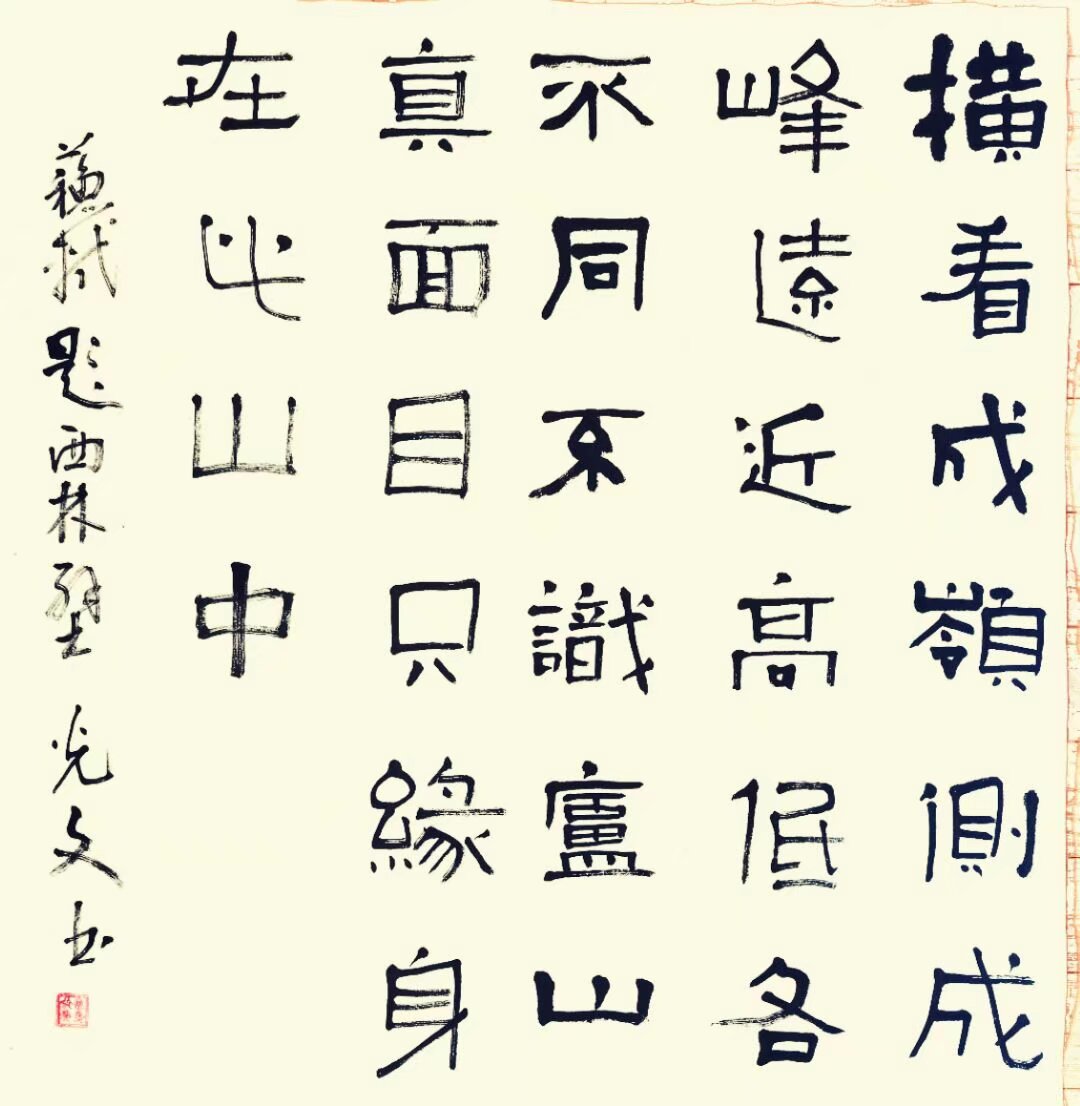 橫看成嶺側成
峰遠近高低各
不同不識廬山
真面目只緣身
在此山中
蘇軾題西林壁 光文书